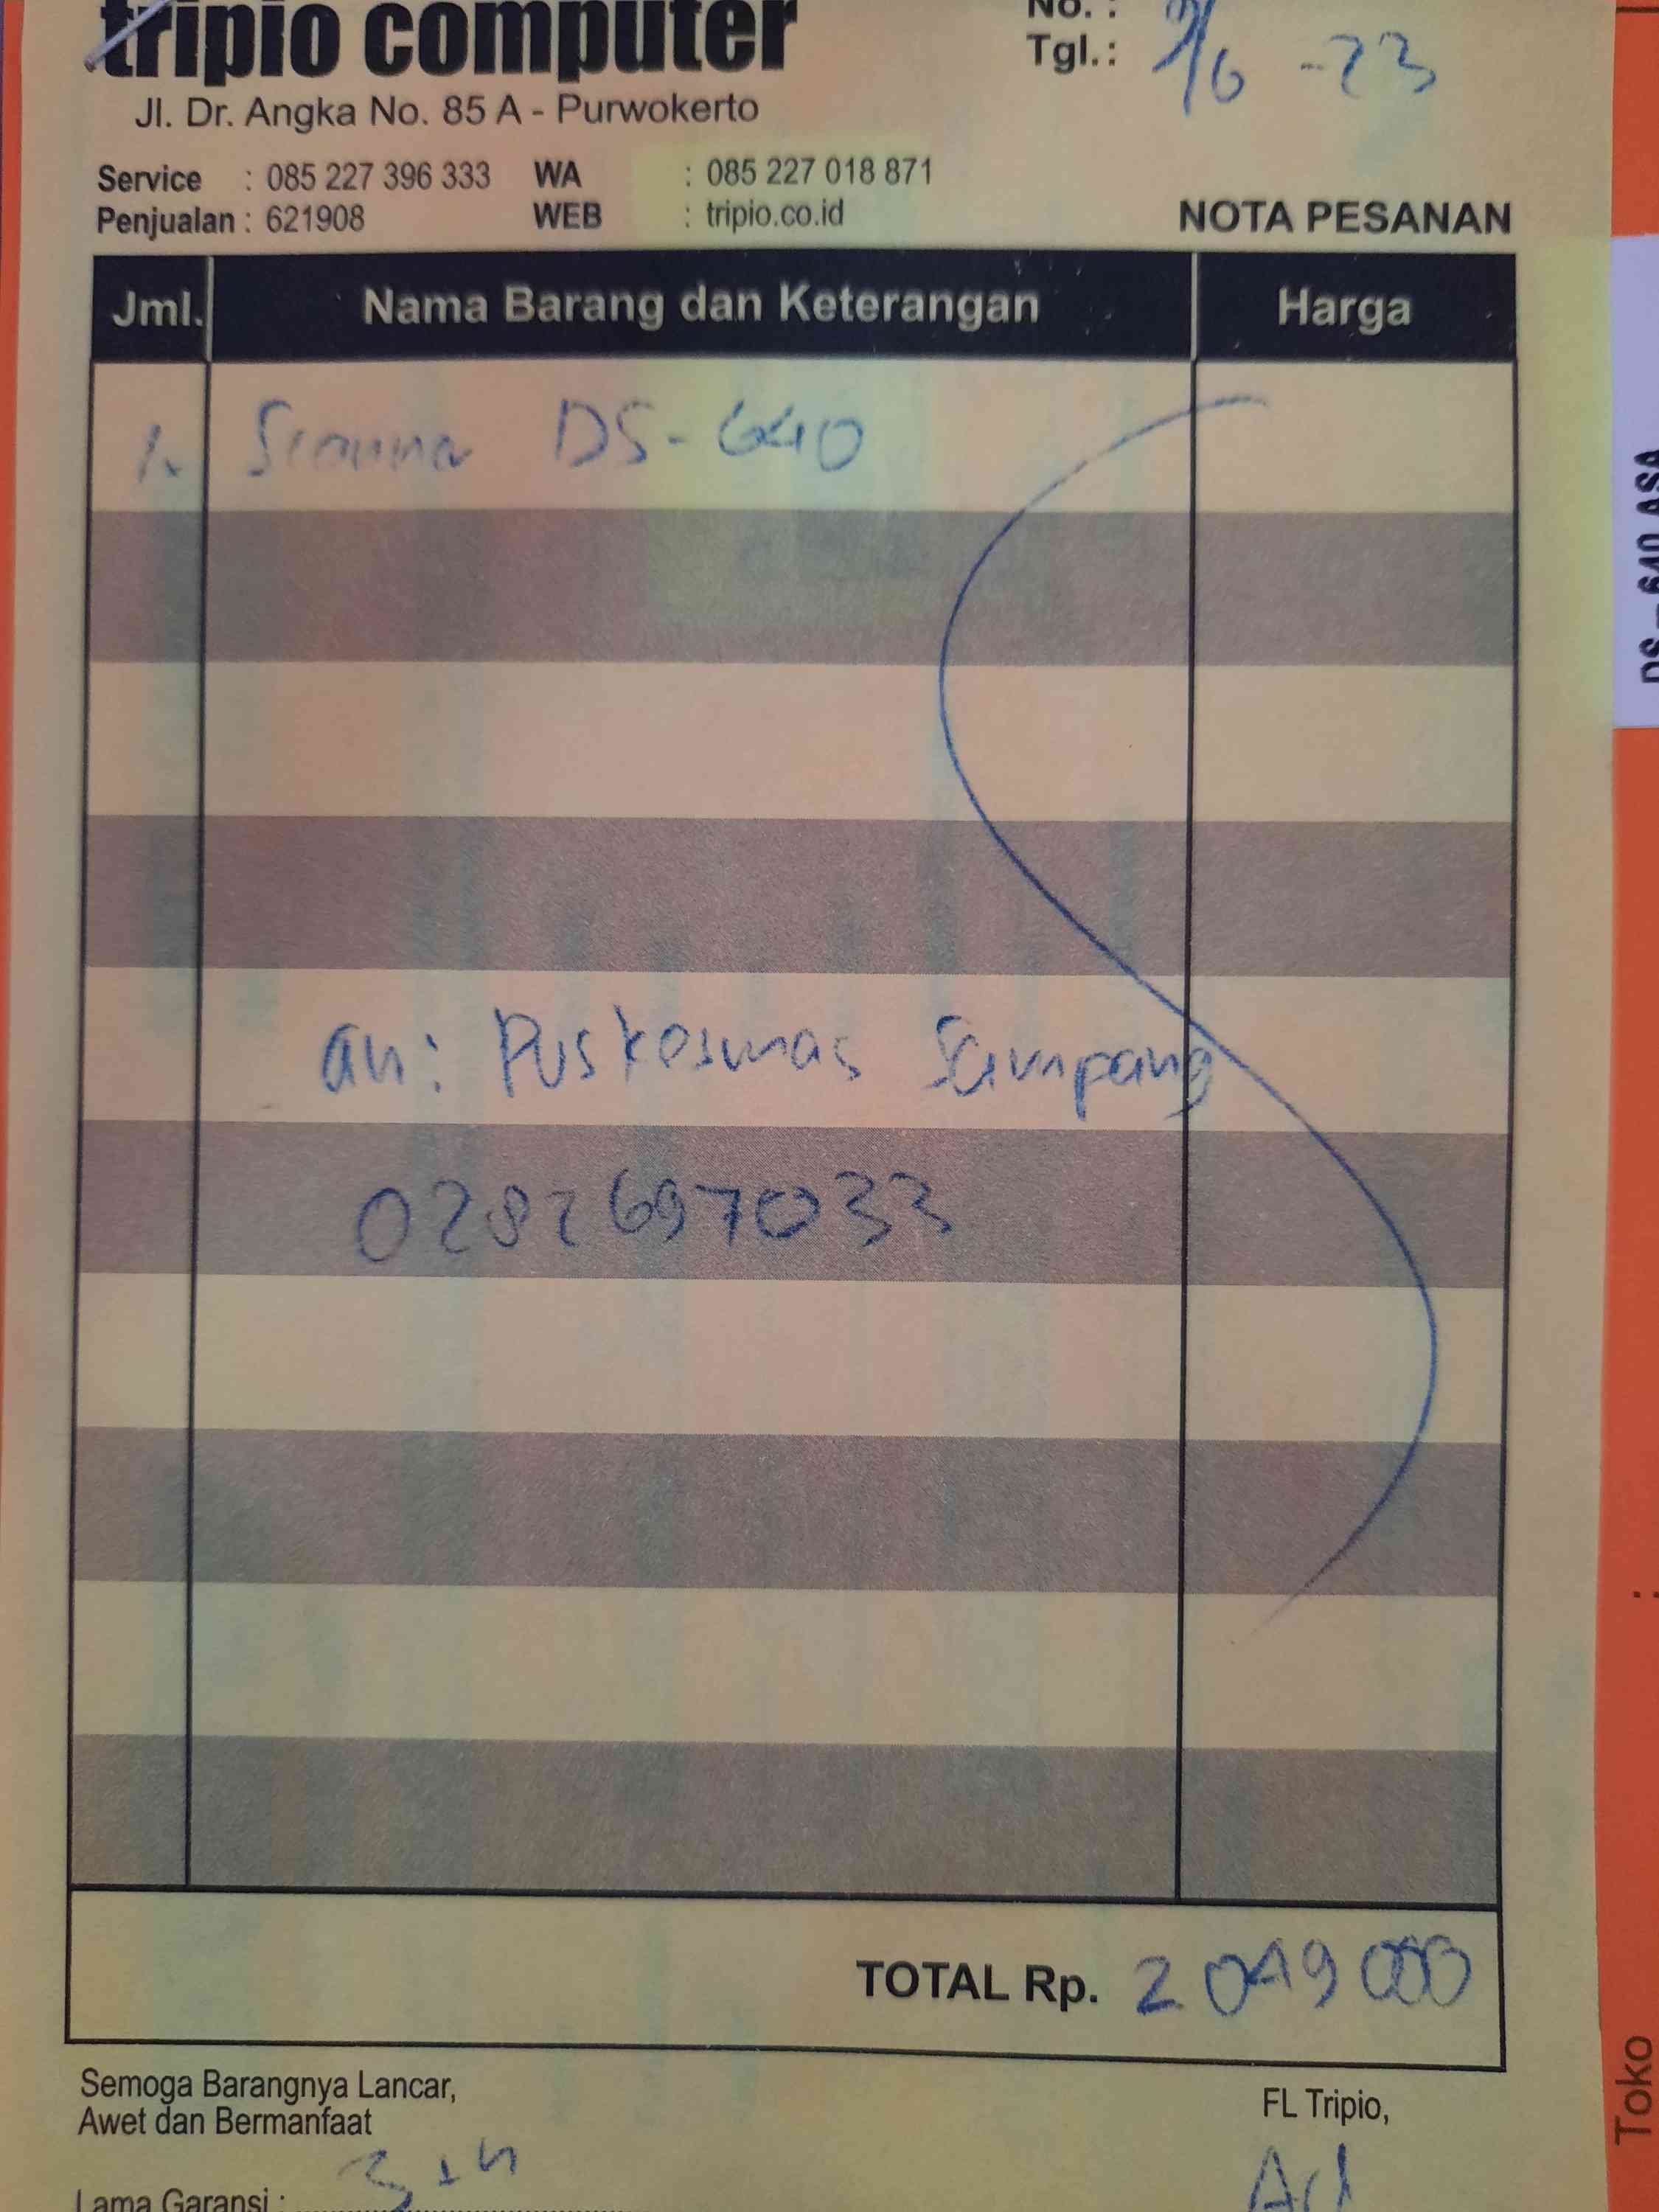 tripio computer
No. :
Tgl.: 9/6 - 23
Jl. Dr. Angka No. 85 A - Purwokerto
Service : 085 227 396 333 WA : 085 227 018 871
Penjualan : 621908 WEB : tripio.co.id
NOTA PESANAN
Jml. Nama Barang dan Keterangan Harga
1. Scanner DS-640
an: Puskesmas Sampang
0282697033
TOTAL Rp. 2 049 000
Semoga Barangnya Lancar,
Awet dan Bermanfaat
FL Tripio,
Lama Garansi :
DS-640 ASA
Toko :